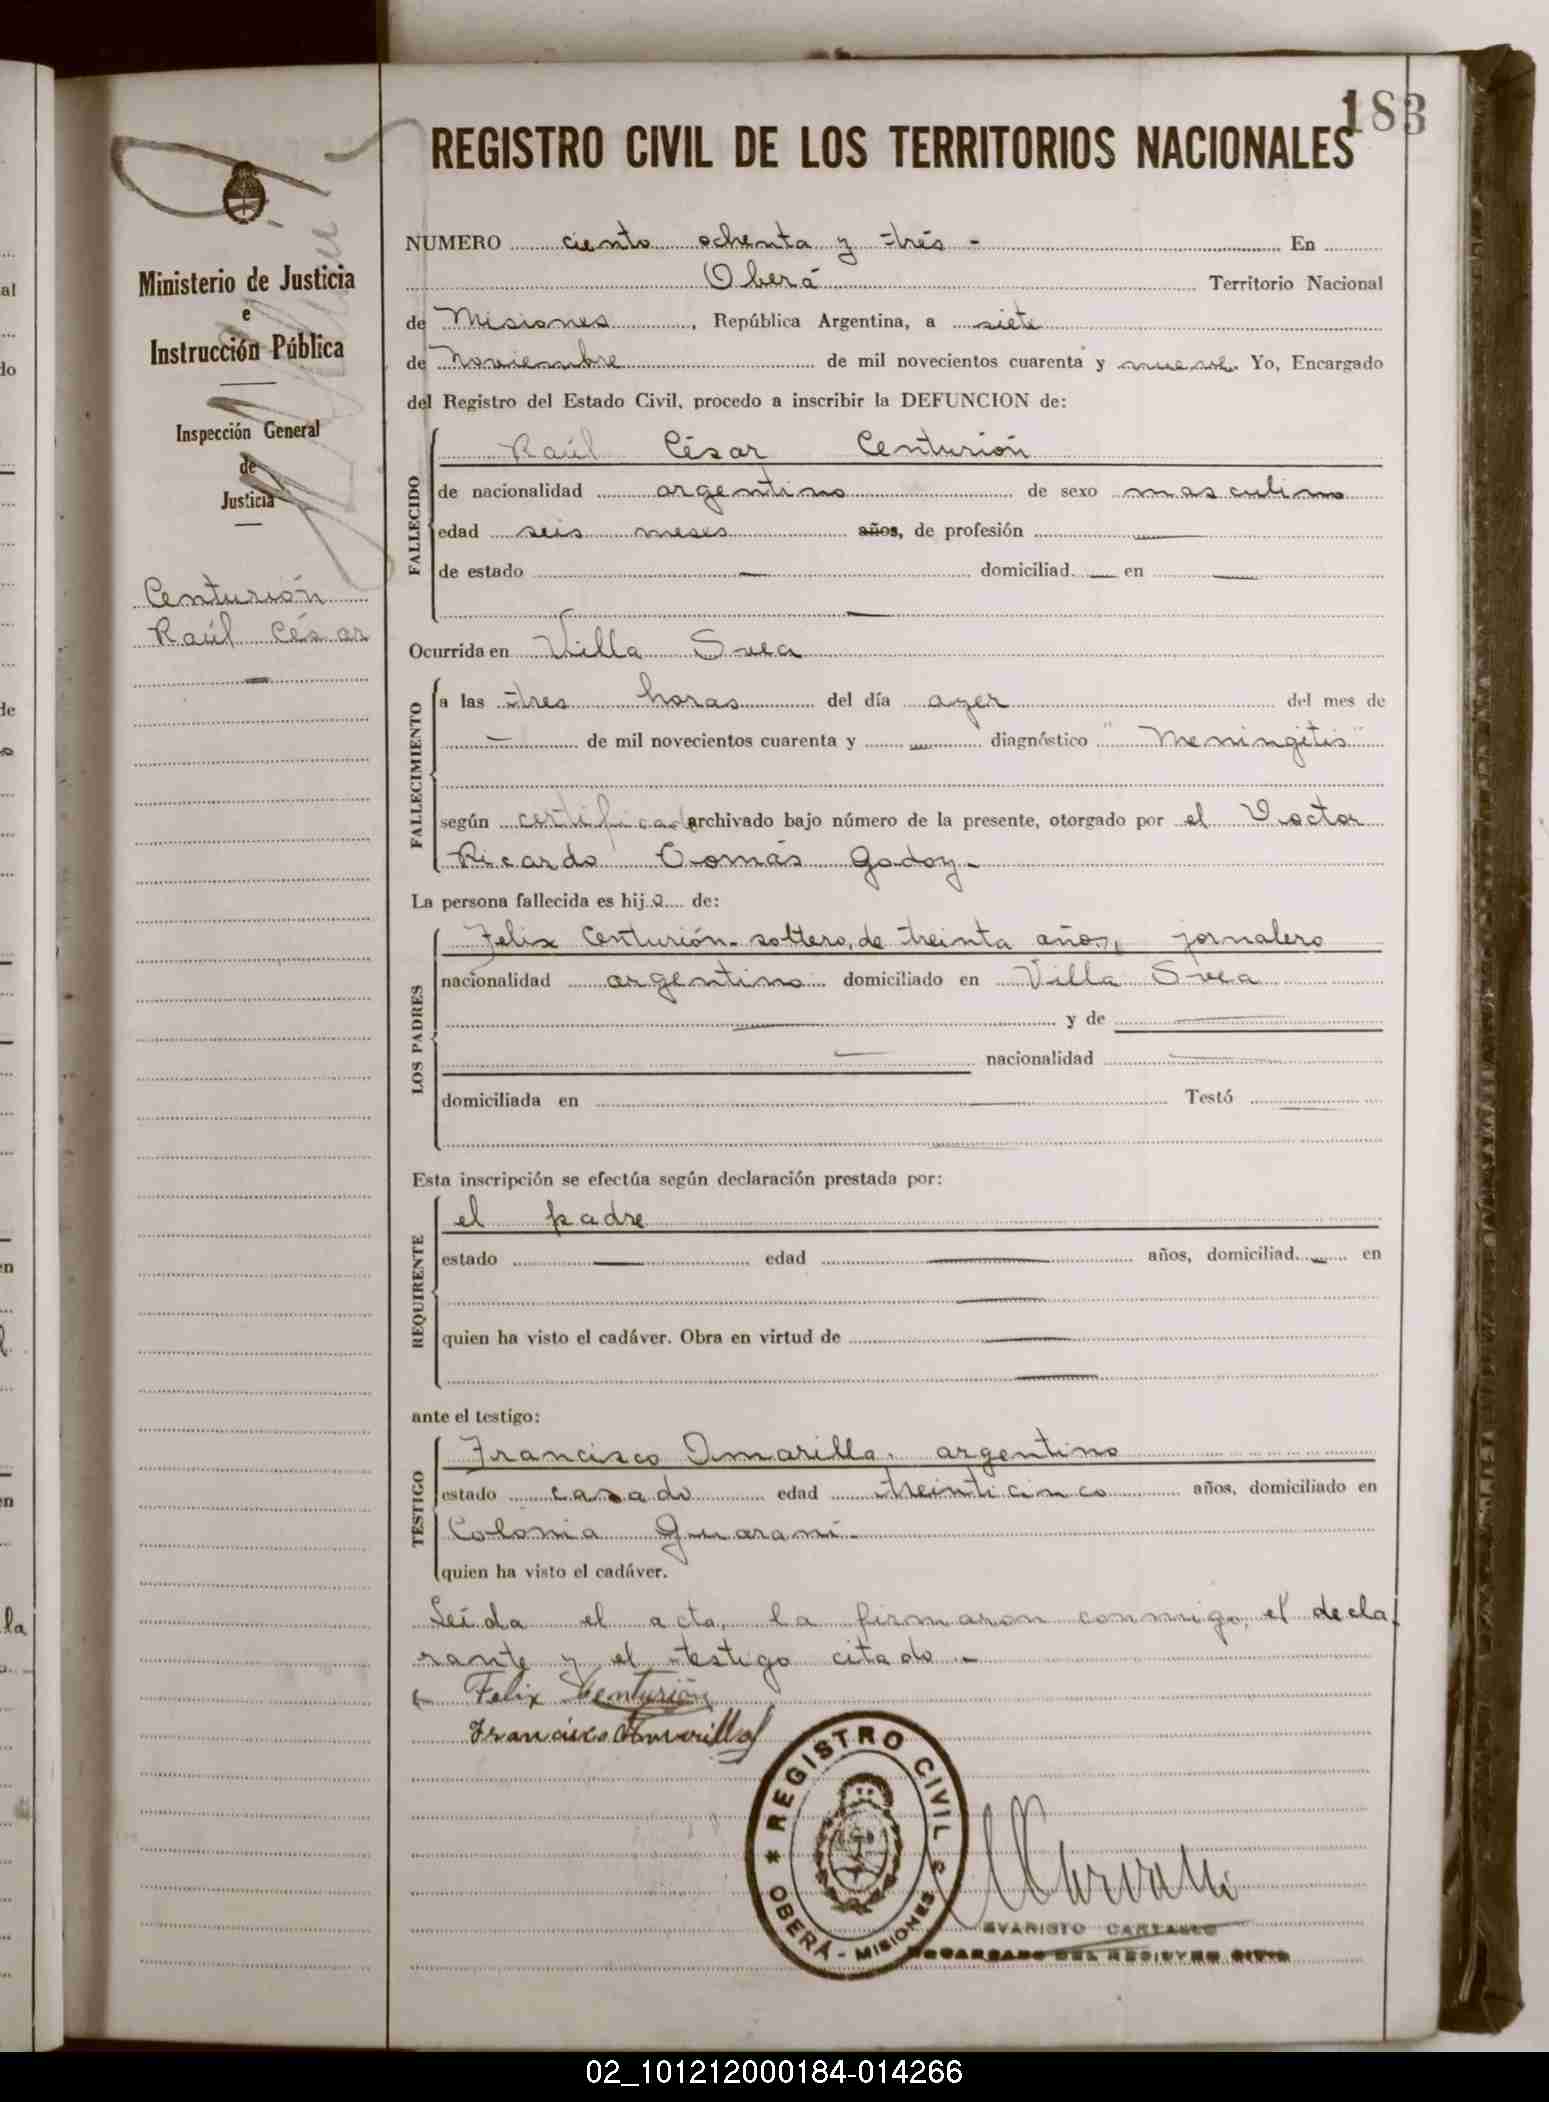 183
REGISTRO CIVIL DE LOS TERRITORIOS NACIONALES
Ministerio de Justicia
e
Instrucción Pública
Inspección General
de
Justicia
Centurión
Raúl César
NUMERO ciento ochenta y trés - En
Oberá Territorio Nacional
de Misiones, República Argentina, a siete
de Noviembre de mil novecientos cuarenta y nueve. Yo, Encargado
del Registro del Estado Civil, procedo a inscribir la DEFUNCION de:
FALLECIDO
Raúl César Centurión
de nacionalidad argentino de sexo masculino
edad seis meses años, de profesión —
de estado — domiciliad — en —
—
Ocurrida en Villa Svea
FALLECIMIENTO
a las tres horas del día ayer del mes de
— de mil novecientos cuarenta y — diagnóstico "Meningitis"
según certificado archivado bajo número de la presente, otorgado por el Doctor
Ricardo Tomás Godoy.-
La persona fallecida es hijo de:
LOS PADRES
Felix Centurión- soltero, de treinta años, jornalero
nacionalidad argentino domiciliado en Villa Svea
— y de —
— nacionalidad —
domiciliada en — Testó —
—
Esta inscripción se efectúa según declaración prestada por:
REQUIRENTE
el padre
estado — edad — años, domiciliad — en
—
quien ha visto el cadáver. Obra en virtud de —
—
ante el testigo:
TESTIGO
Francisco Amarilla, argentino
estado casado edad treinticinco años, domiciliado en
Colonia Guaraní.-
quien ha visto el cadáver.
Leída el acta, la firmaron conmigo, el decla
rante y el testigo citado.-
Felix Centurión
Francisco Amarilla
* REGISTRO CIVIL *
OBERÁ - MISIONES
EVARISTO
ENCARGADO DEL REGISTRO CIVIL
02_101212000184-014266